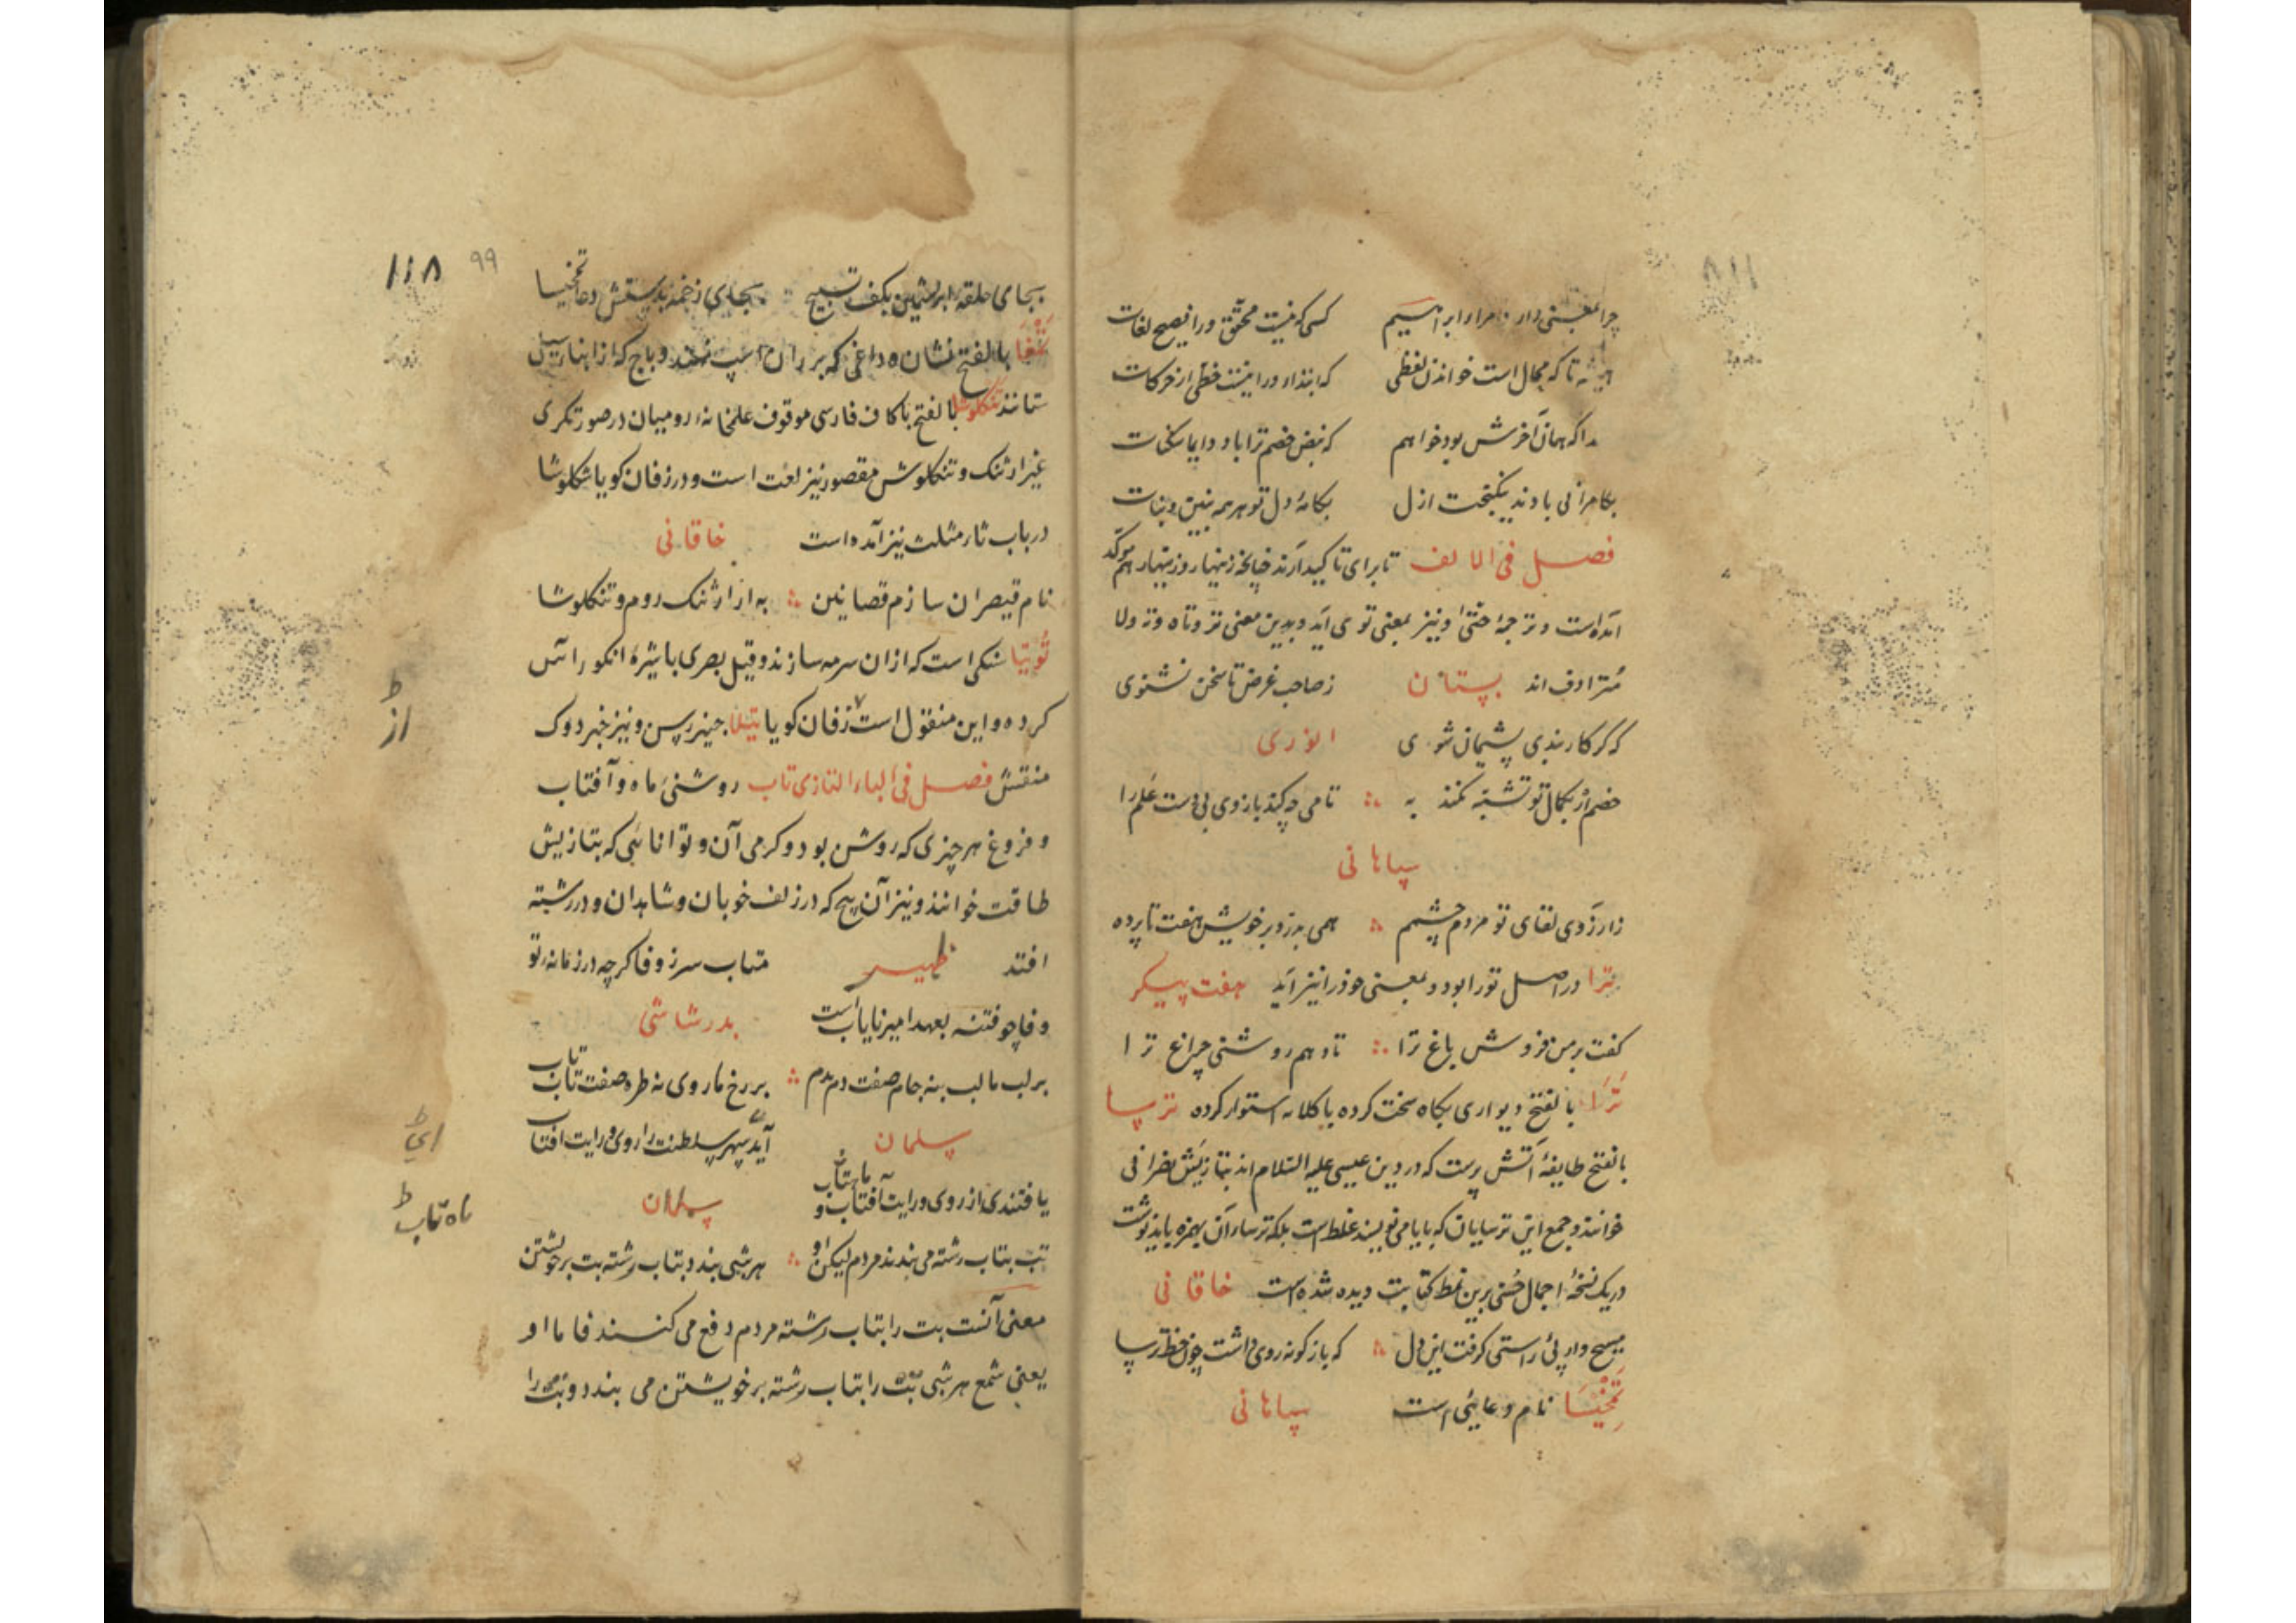 چرا بمعنی دار و مرار ابراهیم کسی که نیست محقق ورا فصیح لغات
همیشه تا که محال است خواندن لفظی که ابتدا ورا نیست خطی از حرکات
که نبض خصم ترا باد دایما سکنات
بکامرانی بادند نیکبخت ازل بکامهٔ دل تو هر همه بنین و بنات
فصل فی الالف تا برای تاکید آرند چنانچه زینهار و زینهار هم موکد
آمده است و ترجمهٔ حتی و نیز بمعنی توی آید و بدین معنی تر و تاه و ته و لا
مترادف اند بستان ز صاحب غرض تا سخن نشنوی
که گر کار بندی پشیمان شوی انوری
خصم ار بکمال تو تشبه نکند به تا می چه کند بازوی بی دست علم را
سپاهانی
ز آرزوی لقای تو مردم چشمم همی بدرد بر خویش هفت تا پرده
ترا در اصل تو را بود و بمعنی خود را نیز آید هفت پیکر
گفت بر من فروش باغ ترا تا دهم روشنی چراغ ترا
ترا بالفتح دیواری بکاه سخت کرده یا کلانه استوار کرده ترسا
بالفتح طایفهٔ آتش پرست که در دین عیسی علیه السلام اند بتازیش نصرانی
خوانند و جمع این ترسایان که بایا می نویسند غلط است بلکه ترسا آن بهمزه باید نوشت
در یک نسخهٔ اجمال حسنی برین نمط کتابت دیده شده است خاقانی
مسیح وار پی راستی گرفت این دل که باژگونه روی داشت چون خط ترسا
تمخیسا نام دعایی است سپاهانی
۱۱۸ ۹۹
بجای حلقهٔ ابریشمین بکف تسبیح بجای زخمه بدستش دعا تمخیسا
تمغا بالفتح نشان و داغی که بر ران اسپ نهند و باج که از ابنا سبیل
ستانند تنکلوشا بالفتح با کاف فارسی موقوف علمخانهٔ رومیان در صورتگری
غیر ارثنگ و تنکلوش مقصور نیز لغت است و در زفان کویا شکلوشا
در باب ثار مثلث نیز آمده است خاقانی
نام قیصران سازم تصانیف به از ارثنگ روم و تنکلوشا
توتیا سنگی است که ازان سرمه سازند و قیل بصری با شیرهٔ انگور آس
کرده و این منقول است زفان کویا تیتا جنیر رسن و نیز خبر دوک
منقش فصل فی الباء التازی تاب روشنی ماه و آفتاب
و فروغ هر چیزی که روشن بود و گرمی آن و توانائی که بتازیش
طاقت خوانند و نیز آن پیچ که در زلف خوبان و شاهدان و در رشته
افتد ظهیر متاب سر ز وفا گرچه در زمانه تو
وفا چو فتنه بعهد امیر نایاب است بدر شاشی
بر لب ما لب بنه جام صفت دم بدم بر رخ ما روی نه طره صفت تاب تاب
سلمان آید سپهر سلطنت را روی و رایت افتاب
یافتندی از روی و رایت آفتاب و ماهتاب سلمان
تب بتاب رشته می بندند مردم لیکن او هر شبی بندد بتاب رشته تب بر خویشتن
معنی آنست تب را بتاب رشته مردم دفع می کنند فاما او
یعنی شمع هر شبی تب را بتاب رشته بر خویشتن می بندد و تب را
از
ماه تاب